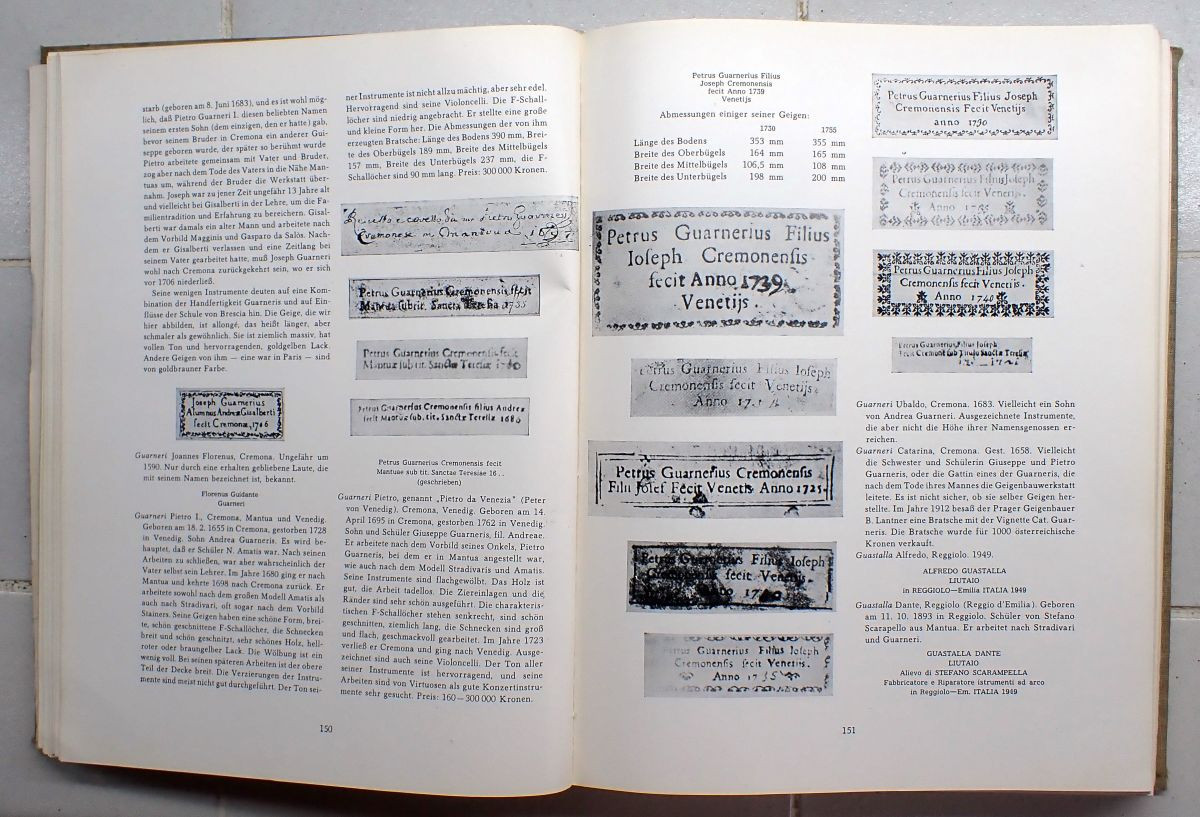 starb (geboren am 8. Juni 1683), und es ist wohl mög-
lich, daß Pietro Guarneri I. diesen beliebten Namen
seinem ersten Sohn (dem einzigen, den er hatte) gab,
bevor seinem Bruder in Cremona ein anderer Gui-
seppe geboren wurde, der später so berühmt wurde
Pietro arbeitete gemeinsam mit Vater und Bruder,
zog aber nach dem Tode des Vaters in die Nähe Man-
tuas um, während der Bruder die Werkstatt über-
nahm. Joseph war zu jener Zeit ungefähr 13 Jahre alt
und vielleicht bei Gisalberti in der Lehre, um die Fa-
milientradition und Erfahrung zu bereichern. Gisal-
berti war damals ein alter Mann und arbeitete nach
dem Vorbild Magginis und Gasparo da Salòs. Nach-
dem er Gisalberti verlassen und eine Zeitlang bei
seinem Vater gearbeitet hatte, muß Joseph Guarneri
wohl nach Cremona zurückgekehrt sein, wo er sich
vor 1706 niederließ.
Seine wenigen Instrumente deuten auf eine Kom-
bination der Handfertigkeit Guarneris und auf Ein-
flüsse der Schule von Brescia hin. Die Geige, die wir
hier abbilden, ist allongé, das heißt länger, aber
schmaler als gewöhnlich. Sie ist ziemlich massiv, hat
vollen Ton und hervorragenden, goldgelben Lack.
Andere Geigen von ihm — eine war in Paris — sind
von goldbrauner Farbe.
Joseph Guarnerius
Alumnus Andreæ Gisalberti
fecit Cremonæ, 1706
Guarneri Joannes Florenus, Cremona. Ungefähr um
1590. Nur durch eine erhalten gebliebene Laute, die
mit seinem Namen bezeichnet ist, bekannt.
Florenus Guidante
Guarneri
Guarneri Pietro I., Cremona, Mantua und Venedig.
Geboren am 18. 2. 1655 in Cremona, gestorben 1728
in Venedig. Sohn Andrea Guarneris. Es wird be-
hauptet, daß er Schüler N. Amatis war. Nach seinen
Arbeiten zu schließen, war aber wahrscheinlich der
Vater selbst sein Lehrer. Im Jahre 1680 ging er nach
Mantua und kehrte 1698 nach Cremona zurück. Er
arbeitete sowohl nach dem großen Modell Amatis als
auch nach Stradivari, oft sogar nach dem Vorbild
Stainers. Seine Geigen haben eine schöne Form, brei-
te, schön geschnittene F-Schallöcher, die Schnecken
breit und schön geschnitzt, sehr schönes Holz, hell-
roter oder braungelber Lack. Die Wölbung ist ein
wenig voll. Bei seinen späteren Arbeiten ist der obere
Teil der Decke breit. Die Verzierungen der Instru-
mente sind meist nicht gut durchgeführt. Der Ton sei-
150
ner Instrumente ist nicht allzu mächtig, aber sehr edel.
Hervorragend sind seine Violoncelli. Die F-Schall-
löcher sind niedrig angebracht. Er stellte eine große
und kleine Form her. Die Abmessungen der von ihm
erzeugten Bratsche: Länge des Bodens 390 mm, Brei-
te des Oberbügels 189 mm, Breite des Mittelbügels
157 mm, Breite des Unterbügels 237 mm, die F-
Schallöcher sind 90 mm lang. Preis: 300 000 Kronen.
Pietro Guarneri
Cremonese in Mantova 1697
Petrus Guarnerius Cremonensis fecit
Mantuæ sub tit. Sanctæ Teresiæ
Petrus Guarnerius Cremonensis fecit
Mantuæ sub tit. Sanctæ Teresiæ
Petrus Guarnerius Cremonensis filius Andreæ
fecit Mantuæ sub. tit. Sanctæ Teresiæ 1686
Petrus Guarnerius Cremonensis fecit
Mantuae sub tit. Sanctae Teresiae 16 . .
(geschrieben)
Guarneri Pietro, genannt „Pietro da Venezia“ (Peter
von Venedig), Cremona, Venedig. Geboren am 14.
April 1695 in Cremona, gestorben 1762 in Venedig.
Sohn und Schüler Giuseppe Guarneris, fil. Andreae.
Er arbeitete nach dem Vorbild seines Onkels, Pietro
Guarneris, bei dem er in Mantua angestellt war,
wie auch nach dem Modell Stradivaris und Amatis.
Seine Instrumente sind flachgewölbt. Das Holz ist
gut, die Arbeit tadellos. Die Ziereinlagen und die
Ränder sind sehr schön ausgeführt. Die charakteris-
tischen F-Schallöcher stehen senkrecht, sind schön
geschnitten, ziemlich lang, die Schnecken sind groß
und flach, geschmackvoll gearbeitet. Im Jahre 1723
verließ er Cremona und ging nach Venedig. Ausge-
zeichnet sind auch seine Violoncelli. Der Ton aller
seiner Instrumente ist hervorragend, und seine
Arbeiten sind von Virtuosen als gute Konzertinstru-
mente sehr gesucht. Preis: 160—300 000 Kronen.
Petrus Guarnerius Filius
Joseph Cremonensis
fecit Anno 1739
Venetijs
Abmessungen einiger seiner Geigen:
1730 1755
Länge des Bodens 353 mm 355 mm
Breite des Oberbügels 164 mm 165 mm
Breite des Mittelbügels 106,5 mm 108 mm
Breite des Unterbügels 198 mm 200 mm
Petrus Guarnerius Filius
Ioseph Cremonensis
fecit Anno 1739.
Venetijs.
Petrus Guarnerius Filius Ioseph
Cremonensis fecit Venetijs.
Anno
Petrus Guarnerius Cremonensis
Filij Josef Fecit Venetis Anno 1725
Petrus Guarnerius Filius Ioseph
Cremonensis fecit Venetijs.
Anno
Petrus Guarnerius Filius Ioseph
Cremonensis fecit Venetijs.
Anno 1735
Petrus Guarnerius Filius Joseph
Cremonensis Fecit Venetijs
anno 1730
Petrus Guarnerius Filius Joseph
Cremonensis fecit Venetijs.
Anno
Petrus Guarnerius Filius Joseph
Cremonensis fecit Venetijs.
Anno 1740
Petrus Guarnerius Filius Joseph
Fecit Cremonæ sub Titulo Sanctæ Teresiæ
Guarneri Ubaldo, Cremona. 1683. Vielleicht ein Sohn
von Andrea Guarneri. Ausgezeichnete Instrumente,
die aber nicht die Höhe ihrer Namensgenossen er-
reichen.
Guarneri Catarina, Cremona. Gest. 1658. Vielleicht
die Schwester und Schülerin Giuseppe und Pietro
Guarneris, oder die Gattin eines der Guarneris, die
nach dem Tode ihres Mannes die Geigenbauwerkstatt
leitete. Es ist nicht sicher, ob sie selber Geigen her-
stellte. Im Jahre 1912 besaß der Prager Geigenbauer
B. Lantner eine Bratsche mit der Vignette Cat. Guar-
neris. Die Bratsche wurde für 1000 österreichische
Kronen verkauft.
Guastalla Alfredo, Reggiolo. 1949.
ALFREDO GUASTALLA
LIUTAIO
in REGGIOLO—Emilia ITALIA 1949
Guastalla Dante, Reggiolo (Reggio d'Emilia). Geboren
am 11. 10. 1893 in Reggiolo. Schüler von Stefano
Scarapello aus Mantua. Er arbeitet nach Stradivari
und Guarneri.
GUASTALLA DANTE
LIUTAIO
Alievo di STEFANO SCARAMPELLA
Fabbricatore e Riparatore istrumenti ad arco
in Reggiolo—Em. ITALIA 1949
151